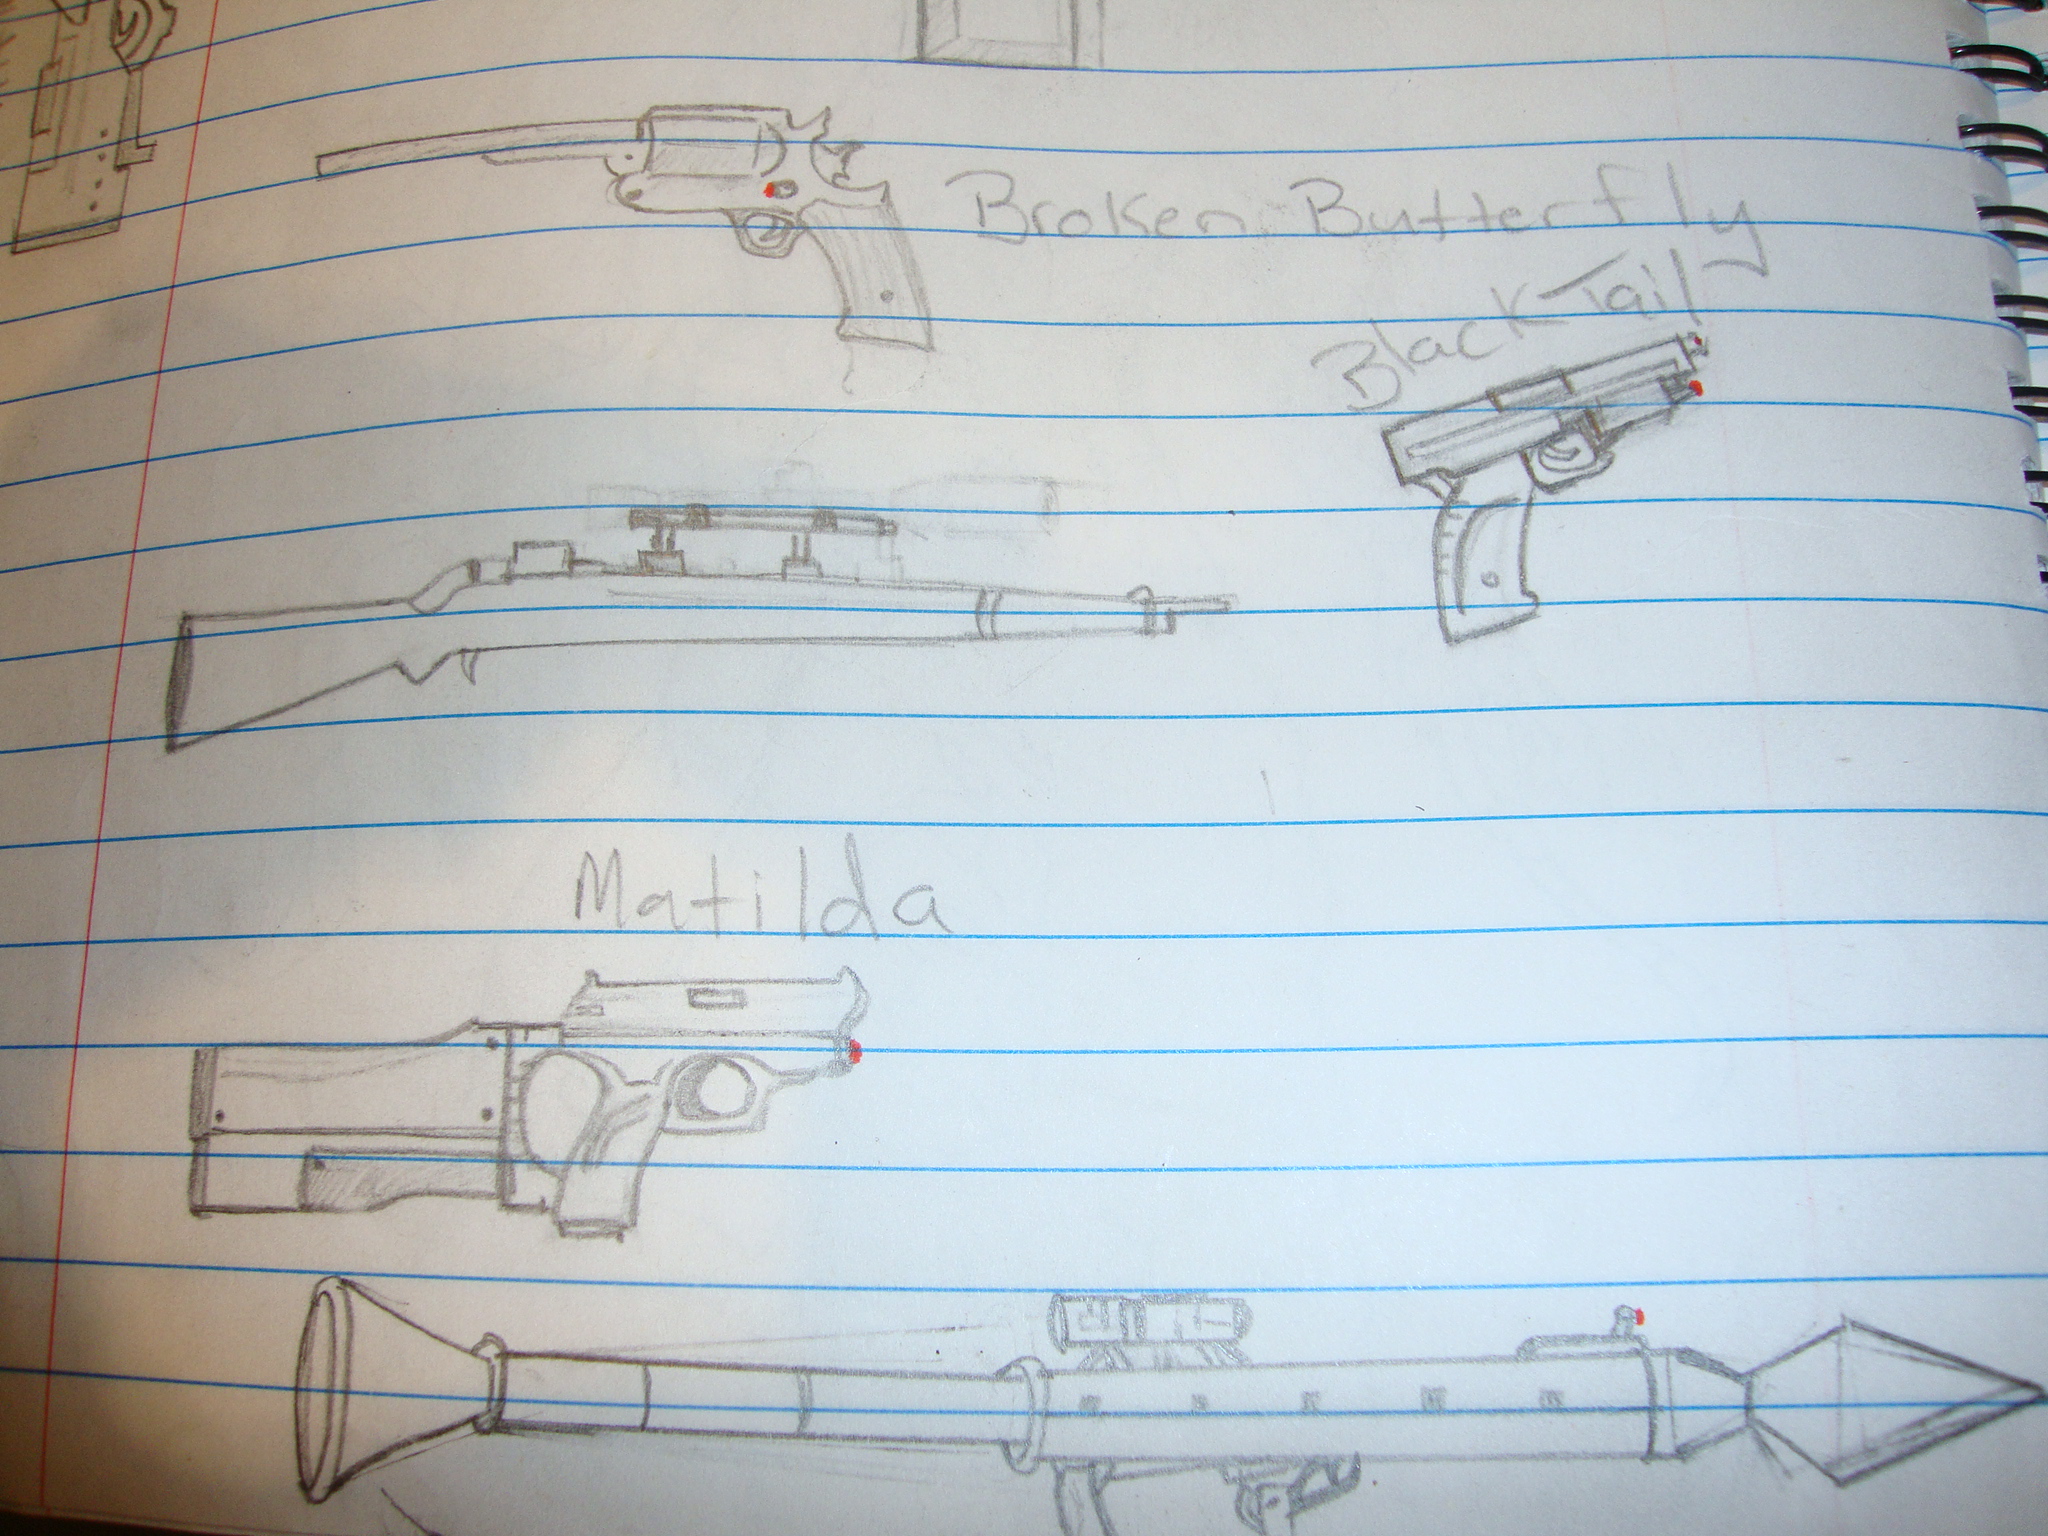 Broken Butterfly
Black Tail
Matilda